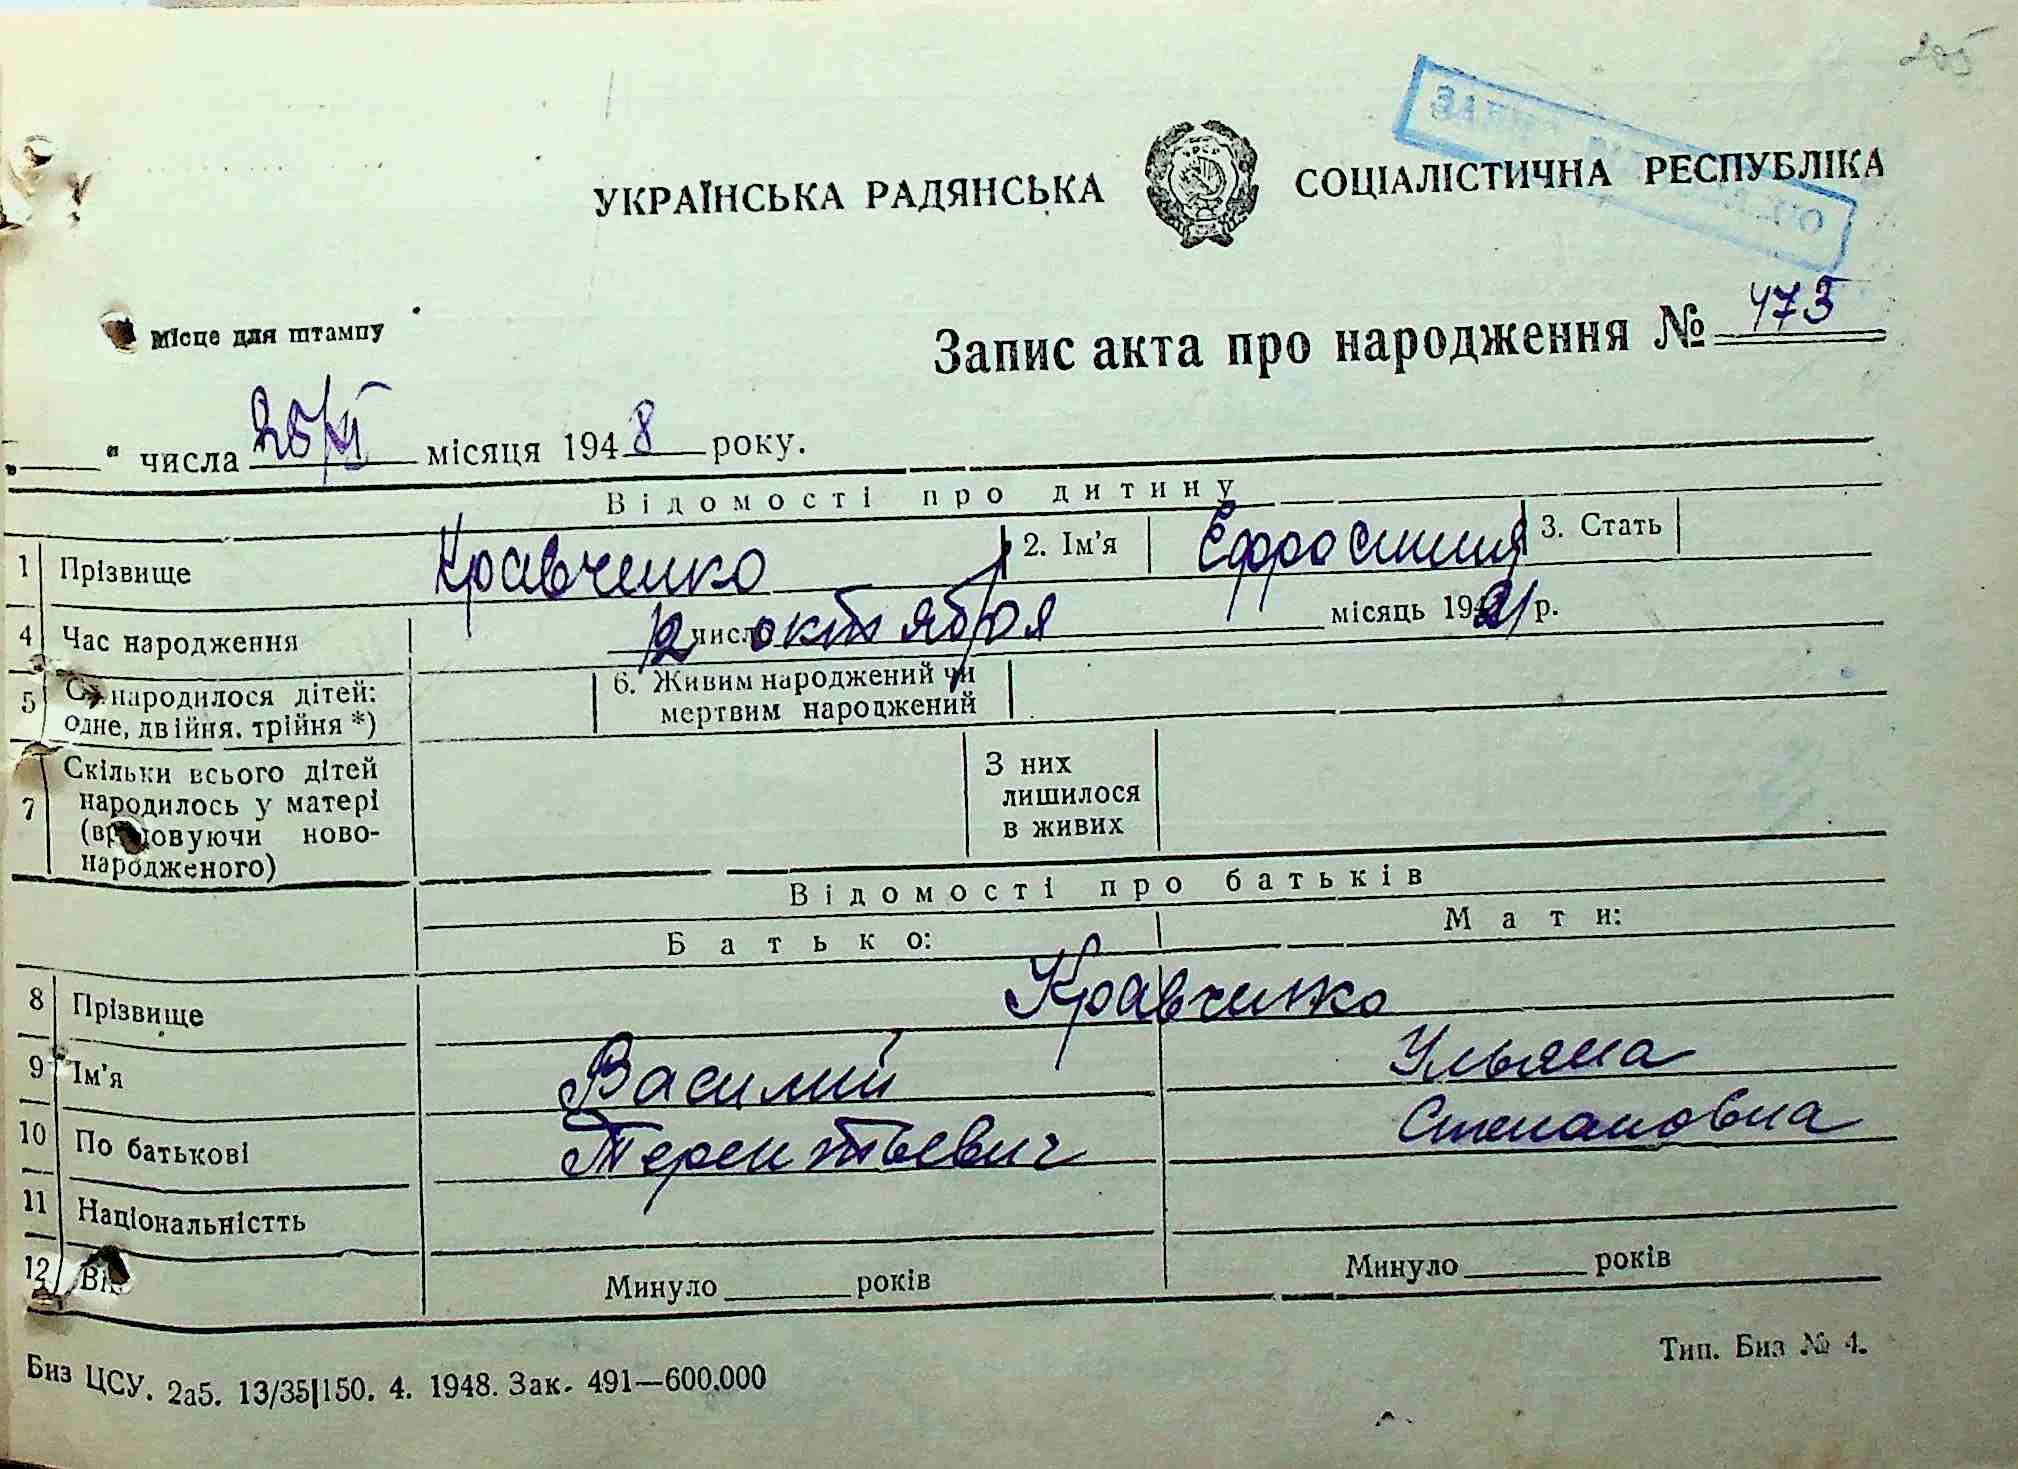 205
УКРАЇНСЬКА РАДЯНСЬКА СОЦІАЛІСТИЧНА РЕСПУБЛІКА
Місце для штампу
Запис акта про народження № 473
„ “ числа 25/XI місяця 1948 року.
Відомості про дитину
1 Прізвище Кравченко 2. Ім'я Ефросиния 3. Стать
4 Час народження 12 число октября місяць 1921 р.
5 народилося дітей: одне, двійня, трійня *) 6. Живим народжений чи мертвим народжений
7 Скільки всього дітей народилось у матері (враховуючи ново-народженого) З них лишилося в живих
Відомості про батьків
Батько: Мати:
8 Прізвище Кравченко
9 Ім'я Василий Ульяна
10 По батькові Терентьевич Степановна
11 Національністть
12 Вік Минуло років Минуло років
Биз ЦСУ. 2а5. 13/35|150. 4. 1948. Зак. 491—600.000
Тип. Биз № 4.